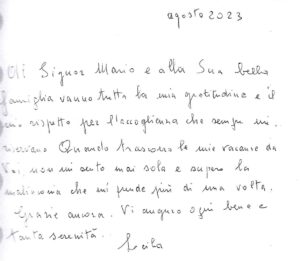 agosto 2023
Al Signor Mario e alla Sua bella
famiglia vanno tutta la mia gratitudine e il
mio rispetto per l'accoglienza che sempre mi
riservano Quando trascorro le mie vacanze da
Voi non mi sento mai sola e supero la
malinconia che mi prende più di una volta.
Grazie ancora. Vi auguro ogni bene e
tanta serenità.